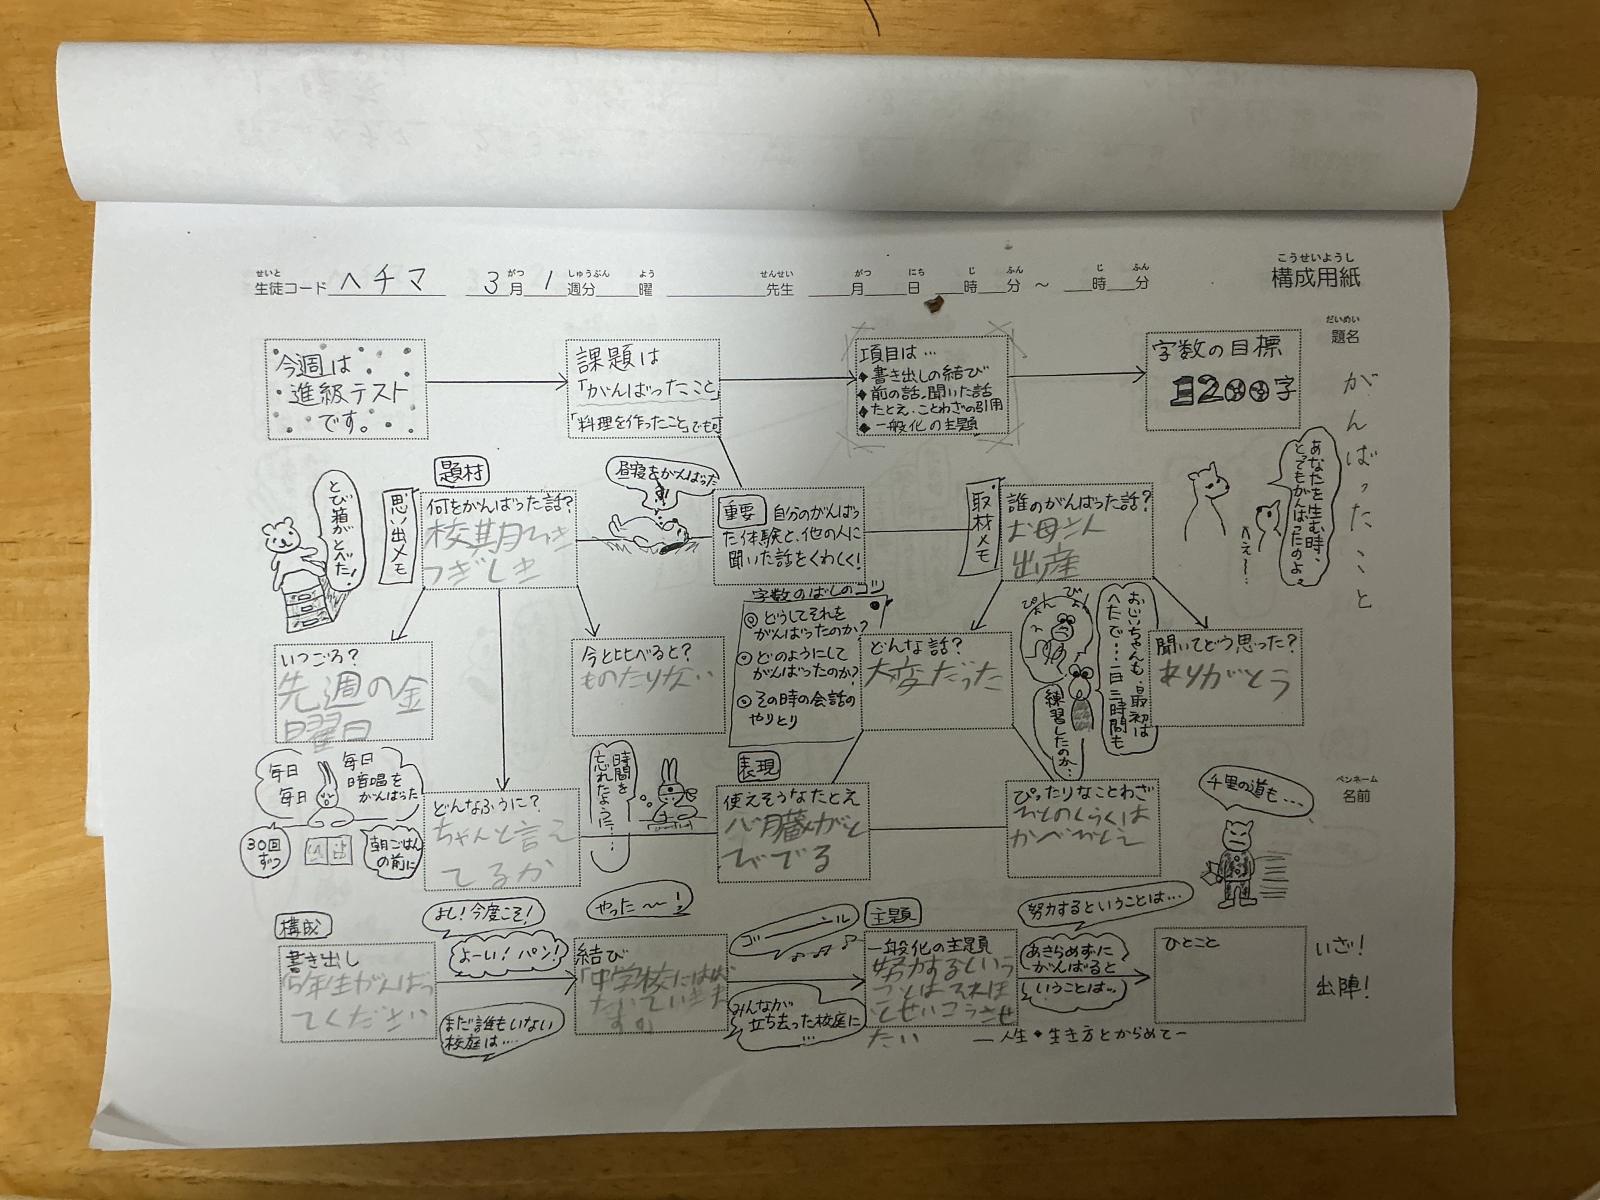 こうせいようし
構成用紙
せいと がつ しゅうぶん よう せんせい がつ にち じ ふん じ ふん
生徒コード ヘチマ 3月 1週分 曜 先生 月 日 時 分 ～ 時 分
だいめい
題名
がんばったこと
今週は
進級テスト
です。
課題は
「がんばったこと」
「料理を作ったこと」でも可
項目は…
◆書き出しの結び
◆前の話,聞いた話
◆たとえ・ことわざの引用
◆一般化の主題
字数の目標
1200字
とび箱がとべた!
思い出メモ
題材
何をがんばった話?
校期ひき
つぎしき
昼寝をがんばった
重要 自分のがんばっ
た体験と、他の人に
聞いた話をくわしく!
取材メモ
誰のがんばった話?
お母さん
出産
あなたを生む時、
とてもがんばったのよ。
へぇ～…
いつごろ?
先週の金
曜日
今と比べると?
ものたりない
字数のばしのコツ
◎どうしてそれを
がんばったのか?
◎どのようにして
がんばったのか?
◎その時の会話の
やりとり
どんな話?
大変だった
ぴょん
おじいちゃんも、最初は
へたで…一日三時間も
練習したのか…
聞いてどう思った?
ありがとう
毎日
毎日
毎日
暗唱を
がんばった
30回
ずつ
朝ごはん
の前に
どんなふうに?
ちゃんと言え
てるか
時間を
忘れたように…
表現
使えそうなたとえ
心臓がと
びでる
ぴったりなことわざ
かべ
千里の道も…
ペンネーム
名前
構成
書き出し
年生がんばっ
てください
よし!今度こそ!
よーい!パン!
まだ誰もいない
校庭は….
やった～～!
結び
「中学校には
ゴーーーンル
みんなが
立ち去った校庭に
…
主題
一般化の主題
努力するという
ことは
たい
努力するということは…
あきらめずに
がんばると
いうことは…
ひとこと
ー人生◆生き方とからめてー
いざ!
出陣!